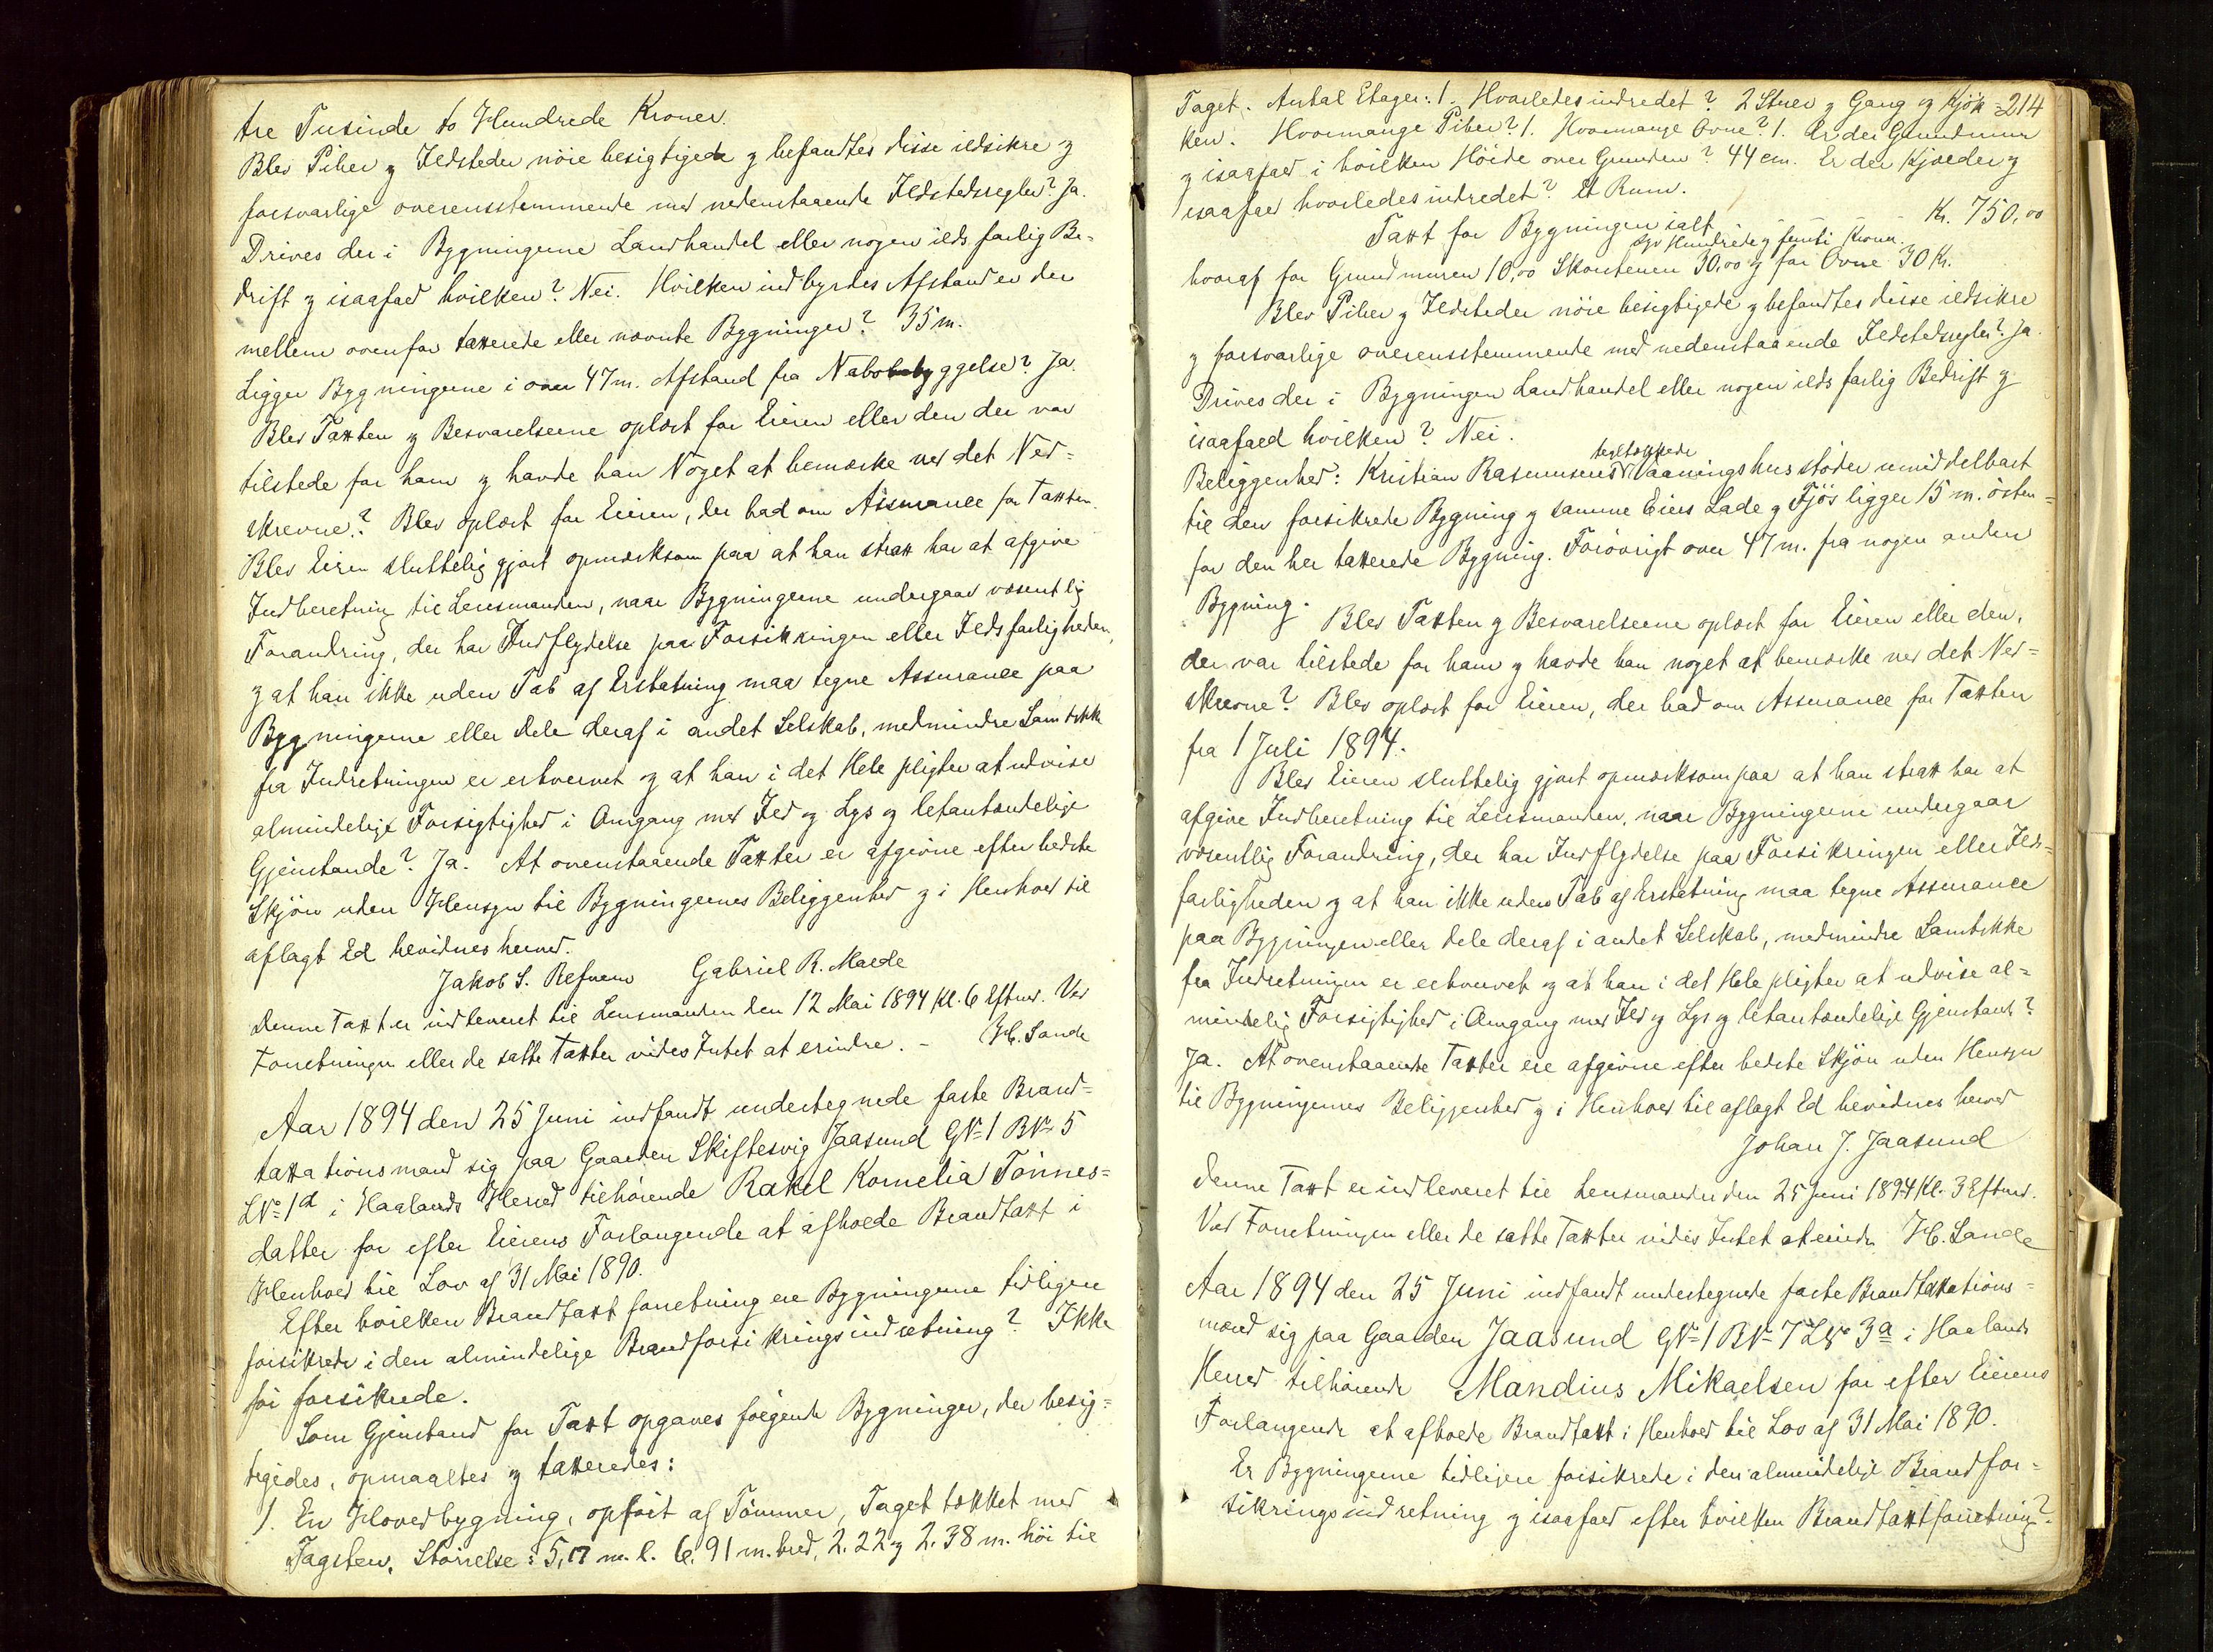 tre Tusinde to Hundrede Kroner.
Blev Piber og Ildsteder nöie besigtigede og befandtes disse ildsikre og
forsvarlige overensstemmende med nedenstaaende Ildstedsregler? Ja.
Drives der i Bygningerne Landhandel eller nogen ildsfarlig Be-
drift og isaafald hvilken? Nei. Hvilken indbyrdes Afstand er der
mellem ovenfor taxerede eller nævnte Bygninger? 35 m.
Ligger Bygningerne i over 47 m. Afstand fra Nabobebyggelse? Ja.
Blev Taxten og Besvarelserne oplæst for Eieren eller den der var
tilstede for ham og havde han Noget at bemærke ved det Ned-
skrevne? Blev oplæst for Eieren, der bad om Assurance for Taxten.
Blev Eieren sluttelig gjort opmærksom paa at han strax har at afgive
Indberetning til Lensmanden, naar Bygningerne undergaar væsentlig
Forandring, der har Indflydelse paa Forsikringen eller Ildsfarligheden,
og at han ikke uden Tab af Erstatning maa tegne Assurance paa
Bygningerne eller dele deraf i andet Selskab, medmindre Samtykke
fra Indretningen er erhvervet og at han i det Hele pligter at udvise
almindelige Forsigtighed i Omgang med Ild og Lys og letantændelige
Gjenstande? Ja. At ovenstaaende Taxter er afgivne efter bedste
Skjön uden Hensyn til Bygningernes Beliggenhed og i Henhold til
aflagt Ed bevidnes herved.
Jakob S. Refnem Gabriel R. Mælde
Denne Taxt er indleveret til Lensmanden den 12 Mai 1894 Kl. 6 Eftmd. Ved
Forretningen eller de satte Taxter vides Intet at erindre. - H. Sande
Aar 1894 den 25 Juni indfandt undertegnede faste Brand-
taxationsmænd sig paa Gaarden Skiftesvig Jaasund GN= 1 BN= 5
LN= 1d i Haalands Herred tilhørende Rakel Kornelia Tönnes-
datter for efter Eierens Forlangende at afholde Brandtaxt i
Henhold til Lov af 31 Mai 1890.
Efter hvilken Brandtaxtforretning ere Bygningerne tidligere
forsikrede i den almindelige Brandforsikringsindretning? Ikke
för forsikrede.
Som Gjenstand for Taxt opgaves fölgende Bygninger, der besig-
tigedes, opmaaltes og taxeredes:
1. En Hovedbygning, opfört af Tömmer, Taget tækket med
Tagsten. Störrelse: 5,17 m. l. 6,91 m. bred, 2.22 og 2.38 m. höi til
214
Taget. Antal Etager: 1. Hvorledes indredet? 2 Stuer og Gang og Kjök-
ken. Hvormange Piber? 1. Hvormange Ovne? 1. Er der Grundmur
og isaafald i hvilken Höide over Grunden? 44 cm. Er der Kjælder og
isaafald hvorledes indredet? Et Rum.
Taxt for Bygningen ialt - - - Kr. 750,00
Syv Hundrede og femti Kroner.
hvoraf for Grundmuren 10,00 Skorstenen 30,00 og for Ovne 30 Kr.
Blev Piber og Ildsteder nöie besigtigede og befandtes disse ildsikre
og forsvarlige overensstemmende med nedenstaaende Ildstedsregler? Ja.
Drives der i Bygningen Landhandel eller nogen ildsfarlig Bedrift og
isaafald hvilken? Nei.
tegltækkede
Beliggenhed: Kristian Rasmussens Vaaningshus stöder umiddelbart
til den forsikrede Bygning og samme Eiers Lade og Fjös ligger 15 m. östen-
for den her taxerede Bygning. Forövrigt over 47 m. fra nogen anden
Bygning. Blev Taxten og Besvarelserne oplæst for Eieren eller den,
der var tilstede for ham og havde han noget at bemærke ved det Ned-
skrevne? Blev oplæst for Eieren, der bad om Assurance for Taxten
fra 1 Juli 1894.
Blev Eieren sluttelig gjort opmærksom paa at han strax har at
afgive Indberetning til Lensmanden, naar Bygningerne undergaar
væsentlig Forandring, der har Indflydelse paa Forsikringen eller Ilds-
farligheden og at han ikke uden Tab af Erstatning maa tegne Assurance
paa Bygningen eller dele deraf i andet Selskab, medmindre Samtykke
fra Indretningen er erhvervet og at han i det Hele pligter at udvise al-
mindelig Forsigtighed i Omgang med Ild og Lys og letantændelige Gjenstande?
Ja. At ovenstaaende Taxter ere afgivne efter bedste Skjön uden Hensyn
til Bygningernes Beliggenhed og i Henhold til aflagt Ed bevidnes herved
Johan J. Jaasund
Denne Taxt er indleveret til Lensmanden den 25 Juni 1894 Kl. 3 Eftmd.
Ved Forretningen eller de satte Taxter vides Intet at erindre H. Sande
Aar 1894 den 25 Juni indfandt undertegnede faste Brandtaxations-
mænd sig paa Gaarden Jaasund GN= 1 BN= 7 LN= 3a i Haalands
Herred tilhörende Mandius Mikaelsen for efter Eierens
Forlangende at afholde Brandtaxt i Henhold til Lov af 31 Mai 1890.
Er Bygningerne tidligere forsikrede i den almindelige Brandfor-
sikringsindretning og isaafald efter hvilken Brandtaxtforretning?